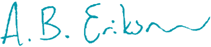 A. B. Erikson